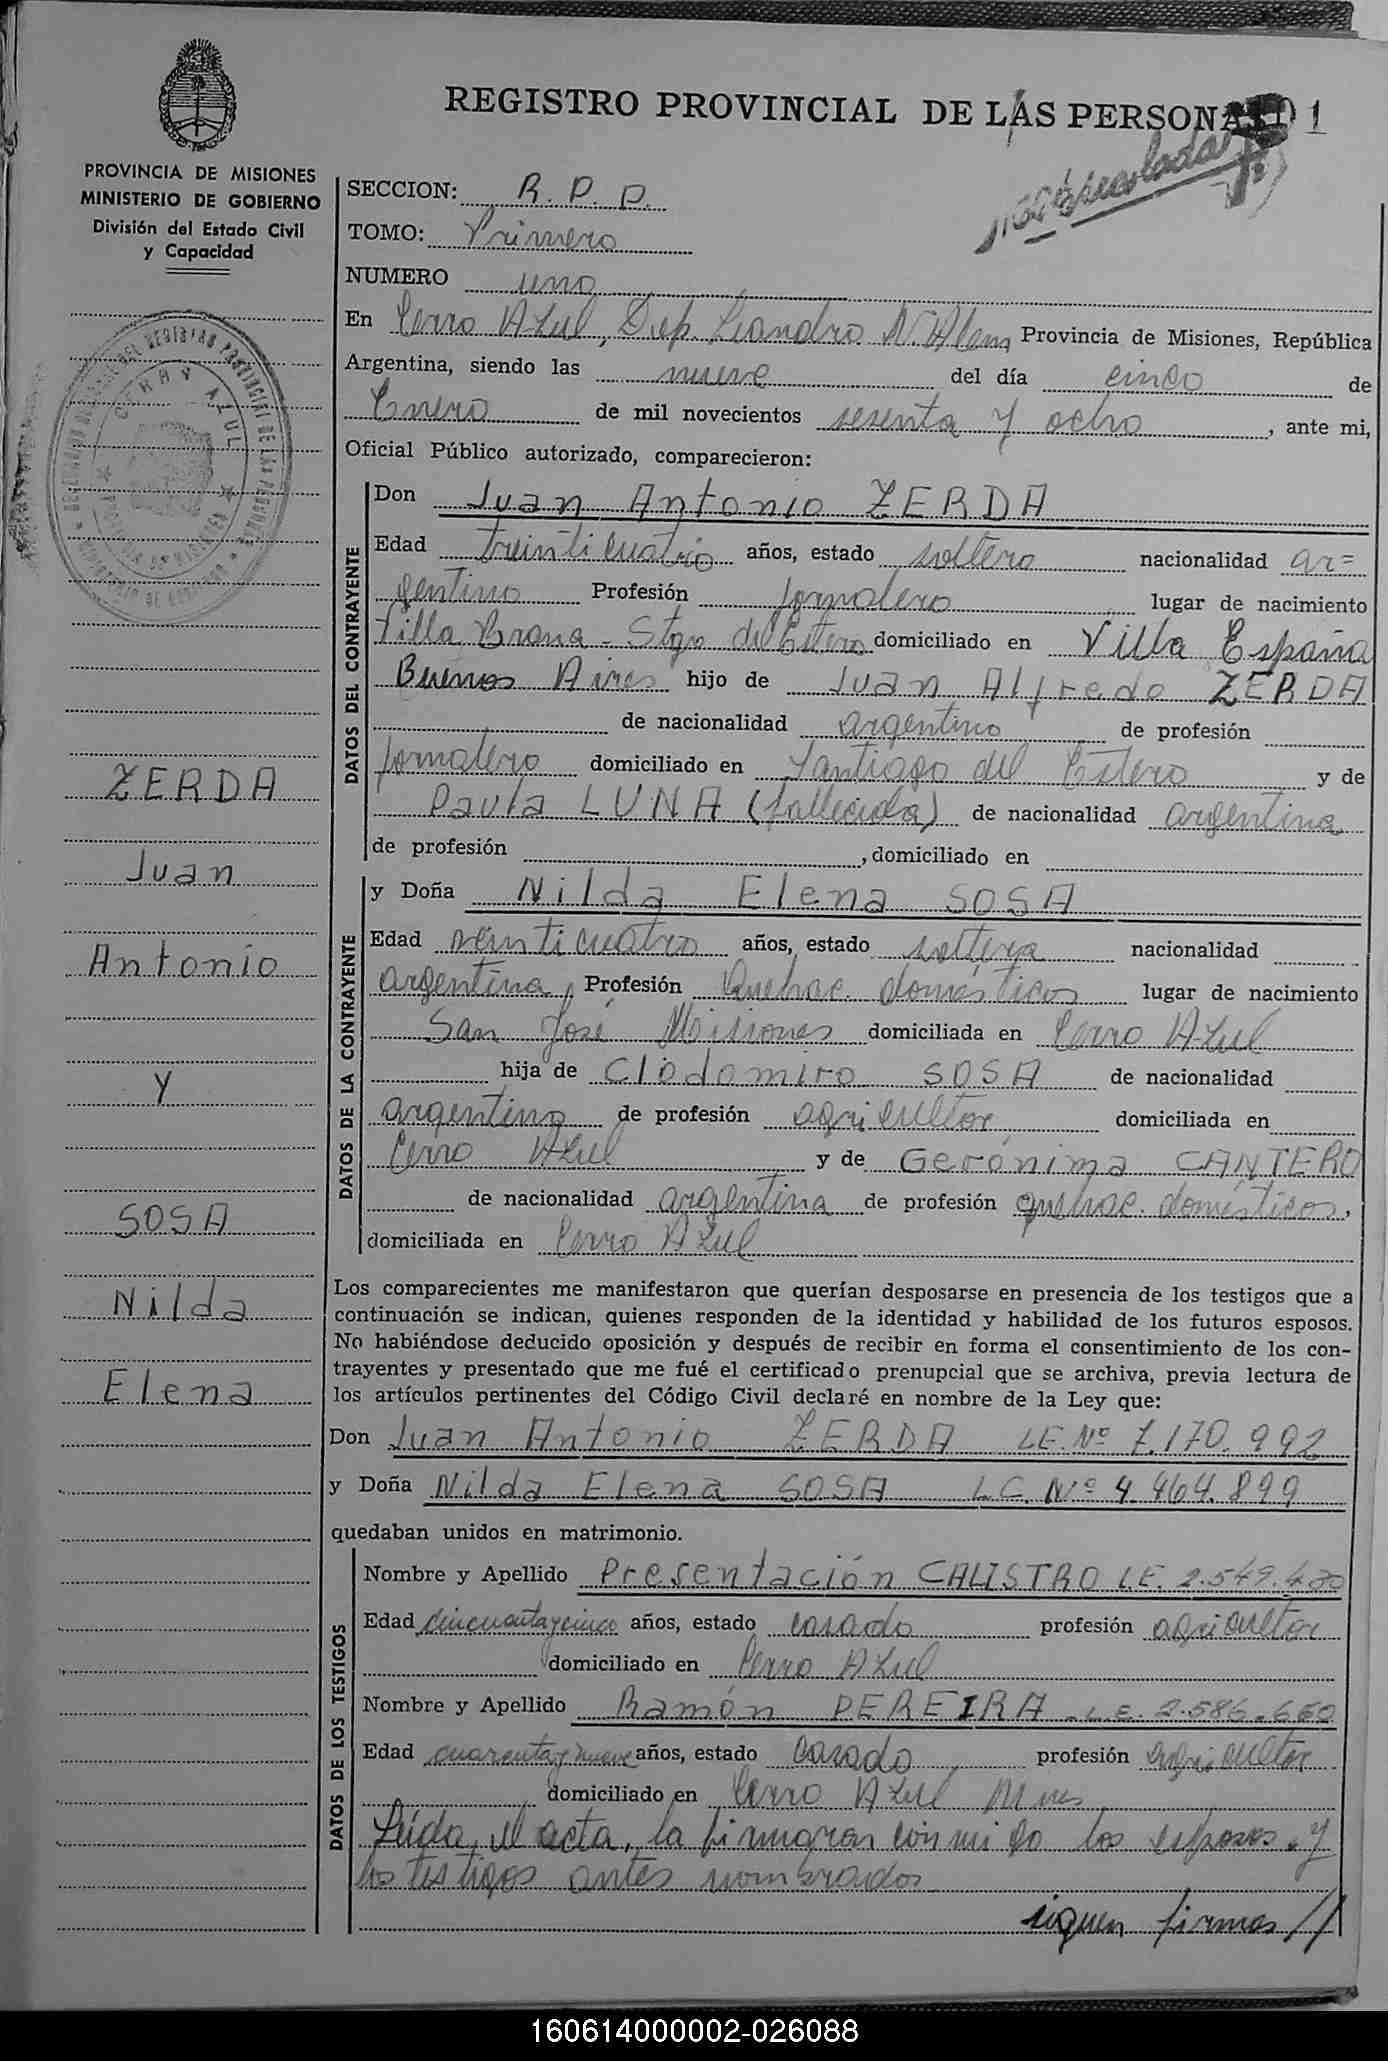 REGISTRO PROVINCIAL DE LAS PERSONAS 1
PROVINCIA DE MISIONES
MINISTERIO DE GOBIERNO
División del Estado Civil
y Capacidad
CERRO AZUL
ZERDA
Juan
Antonio
Y
SOSA
Nilda
Elena
SECCION: R. P. P.
TOMO: Primero
NUMERO uno
En Cerro Azul, Dep. Leandro N. Alem Provincia de Misiones, República
Argentina, siendo las nueve del día cinco de
Enero de mil novecientos sesenta y ocho, ante mi,
Oficial Público autorizado, comparecieron:
DATOS DEL CONTRAYENTE
Don Juan Antonio ZERDA
Edad treinticuatro años, estado soltero nacionalidad ar=
gentino Profesión jornalero lugar de nacimiento
Villa Brana - Stgo del Estero domiciliado en Villa España
Buenos Aires hijo de Juan Alfredo ZERDA
de nacionalidad argentino de profesión
jornalero domiciliado en Santiago del Estero y de
Paula LUNA (fallecida) de nacionalidad argentina
de profesión , domiciliado en
DATOS DE LA CONTRAYENTE
y Doña Nilda Elena SOSA
Edad veinticuatro años, estado soltera nacionalidad
argentina, Profesión Quehac. domésticos lugar de nacimiento
San José Misiones domiciliada en Cerro Azul
hija de Clodomiro SOSA de nacionalidad
argentino de profesión agricultor domiciliada en
Cerro Azul y de Gerónima CANTERO
de nacionalidad argentina de profesión quehac. domésticos,
domiciliada en Cerro Azul
Los comparecientes me manifestaron que querían desposarse en presencia de los testigos que a
continuación se indican, quienes responden de la identidad y habilidad de los futuros esposos.
No habiéndose deducido oposición y después de recibir en forma el consentimiento de los con-
trayentes y presentado que me fué el certificado prenupcial que se archiva, previa lectura de
los artículos pertinentes del Código Civil declaré en nombre de la Ley que:
Don Juan Antonio ZERDA LE. Nº 7.170.992
y Doña Nilda Elena SOSA L.C. Nº 4.464.899
quedaban unidos en matrimonio.
DATOS DE LOS TESTIGOS
Nombre y Apellido Presentación CALISTRO L.E. 2.549.420
Edad cincuenta y cinco años, estado casado profesión agricultor
domiciliado en Cerro Azul
Nombre y Apellido Ramón PEREIRA - L.E. 2.586.660
Edad cuarenta y nueve años, estado casado profesión agricultor
domiciliado en Cerro Azul Mnes
Leída, el acta, la firmaron conmigo los esposos y
los testigos antes nombrados
siguen firmas //
160614000002-026088